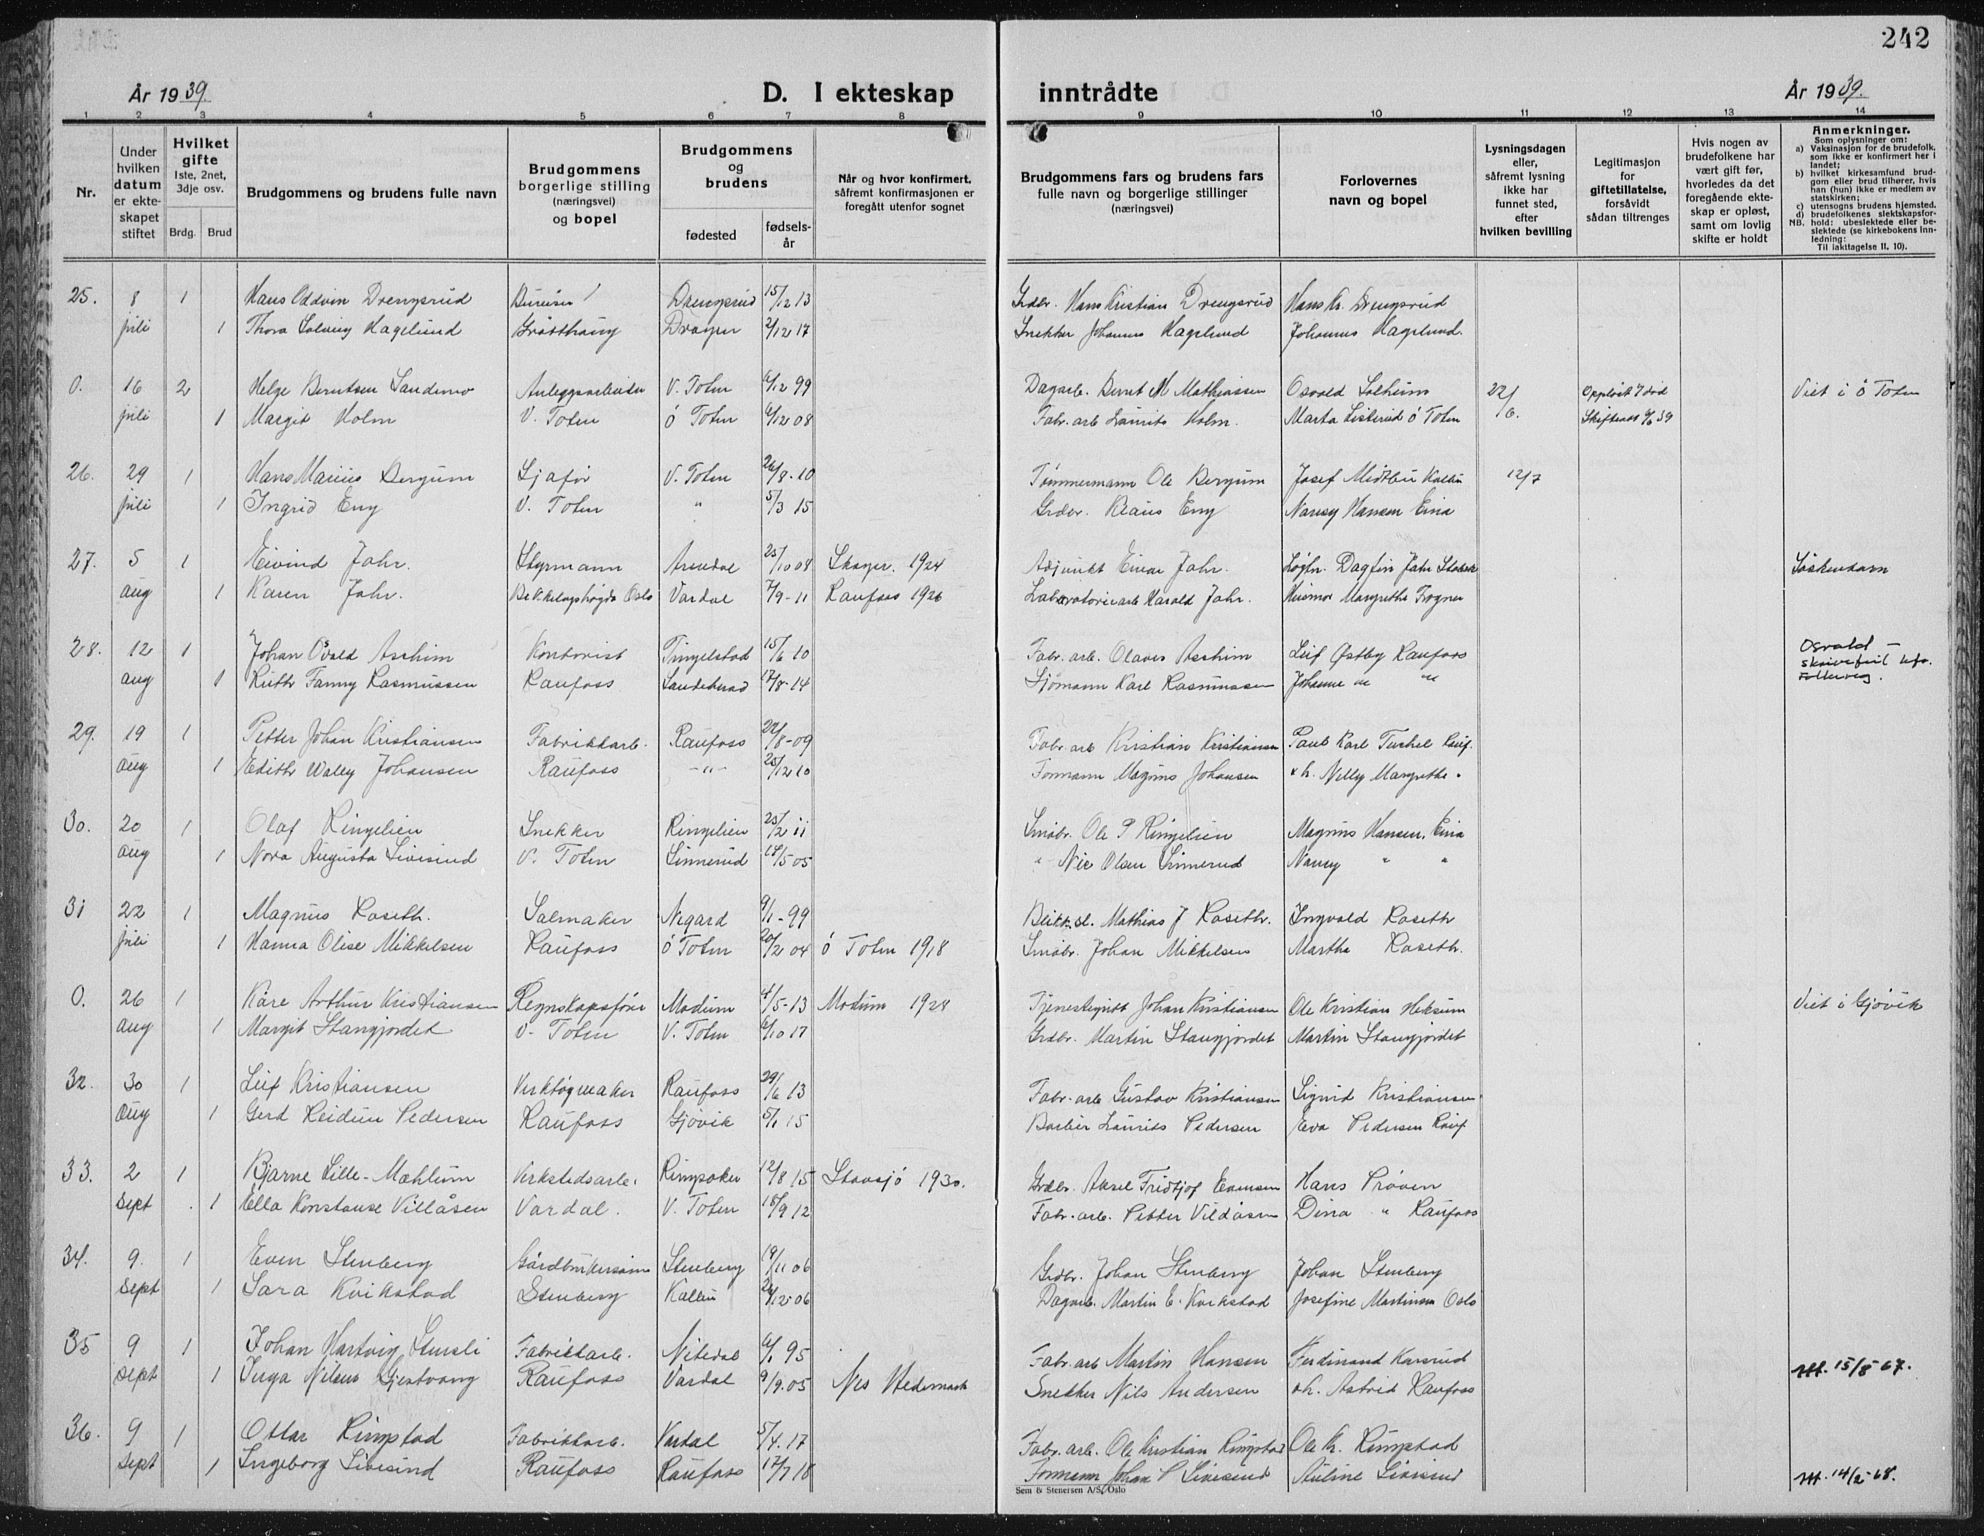 242
År 1939.
D. I ekteskap inntrådte
År 1939.
1 2 3 4 5 6 7 8 9 10 11 12 13 14
Nr.
Under hvilken datum er ekteskapet stiftet
Hvilket gifte 1ste, 2net, 3dje osv.
Brdg. Brud
Brudgommens og brudens fulle navn
Brudgommens borgerlige stilling (næringsvei) og bopel
Brudgommens og brudens
fødested
fødselsår
Når og hvor konfirmert, såfremt konfirmasjonen er foregått utenfor sognet
Brudgommens fars og brudens fars fulle navn og borgerlige stillinger (næringsvei)
Forlovernes navn og bopel
Lysningsdagen eller, såfremt lysning ikke har funnet sted, efter hvilken bevilling
Legitimasjon for giftetillatelse, forsåvidt sådan tiltrenges
Hvis nogen av brudefolkene har vært gift før, hvorledes da det foregående ekteskap er opløst, samt om lovlig skifte er holdt
Anmerkninger.
Som oplysninger om:
a) Vaksinasjon for de brudefolk, som ikke er konfirmert her i landet;
b) hvilket kirkesamfund brudgom eller brud tilhører, hvis han (hun) ikke er medlem av statskirken;
c) utensogns brudens hjemsted.
d) brudefolkenes slektskapsforhold: ubeslektede eller beslektede (se kirkebokens innledning:
NB. Til iakttagelse II, 10).
25. 8 1 Hans Oddvin Drengsrud Drengsrud 15/12 13 Grdbr. Hans Kristian Drengsrud Hans Kr. Drengsrud
juli 1 Thora Solveig Hagelund 2/12 17 Snekker Johannes Hagelund Johannes Hagelund.
0. 16 2 Helge Berntsen Sandemo Anleggsarbeider V. Toten 6/12 99 Dagarb. Bernt M Mathiassen Osvald Solheim 22/6. Oppløst v/ død Viet i Ø Toten
juli 1 Margit Holm V. Toten Ø Toten 6/12 08 Fabr. arb. Laurits Holm. Marta Ø Toten
26. 29 1 Hans Marius Bergum Sjåfør V. Toten 26/8-10 Tømmermann Ole Bergum Josef 12/7
juli 1 Ingrid Eng V. Toten " 5/3 15 Grdbr. Klaus Eng Nancy Hansen Eina
27. 5 1 Eivind Jahr. Styrmann Arendal 25/10 08 1924 Adjunkt Einar Jahr. Dagfin Jahr Søskenbarn
aug 1 Karen Jahr. Bekkelagshøgda Oslo Vardal 7/9-11 Raufoss 1926 Laboratoriearb. Harald Jahr. Husmor Margrethe Trogner
28. 12 1 Johan Osvald Aschim Kontorist Tingelstad 15/6 10 Fabr. arb. Olaves Aschim Leif Østby Raufoss Osvald – skrivefeil
aug 1 Ruth Fanny Rasmussen Raufoss 17/8-14 Sjømann Karl Rasmussen Johanne " "
29. 19 1 Petter Johan Kristiansen Fabrikkarb. Raufoss 22/8-09 Fabr. arb Kristian Kristiansen Paul Karl Tuchel Rauf.
aug 1 Edith Wally Johansen Raufoss -"- 25/12 10 Formann Magnus Johansen Nelly Margrethe "
30. 20 1 Olaf Ringelien Snekker Ringelien 25/2 11 Småbr. Ole P Ringelien Magnus Hansen, Eina
aug 1 Nora Augusta Sivesind V. Toten Linnerud 18/5 05 " Nic Olsen Linnerud Nancy " "
31 22 1 Magnus Roseth. Salmaker Nygard 9/1-99 Blikksl. Mathias J Roseth. Ingvald Roseth
juli 1 Hanna Olise Mikkelsen Raufoss Ø Toten 20/2 04 Ø Toten 1918 Småbr. Johan Mikkelsen Martha Roseth.
0. 26 1 Kåre Arthur Kristiansen Regnskapsfører Modum 4/5-13 Modum 1928 Johan Kristiansen Ole Kristian Heksum Viet i Gjøvik
aug 1 Margit Stangjordet V. Toten V. Toten 6/10 17 Grdbr. Martin Stangjordet Martin Stangjordet
32. 30 1 Leif Kristiansen Verktøymaker Raufoss 29/6 13 Fabr. arb Gustav Kristiansen Sigurd Kristiansen
aug 1 Gerd Reidun Pedersen Raufoss Gjøvik 5/1 15 Barber Laurits Pedersen Eva Pedersen Rauf
33. 2 1 Bjarne Lille-Mæhlum Verkstedsarb. Ringsaker 12/8 15 Stavsjø 1930. Grdbr. Aksel Fridtjof Evensen Hans Prøven
sept 1 Ella Konstanse Villåsen Vardal. V. Toten 15/9 12 Fabr. arb. Petter Vildåsen Dina " Raufoss
34. 9. 1 Even Stenberg Gårdbrukersønn Stenberg 19/11 06 Grdbr. Johan Stenberg Johan Stenberg
sept 1 Sara Kvikstad Stenberg Kolbu 26/12-06 Dagarb. Martin E. Kvikstad Josefine Martinsen Oslo
35 9 1 Johan Hartvig Stensli Fabrikkarb. Nitedal 6/1 95 Fabr. arb Martin Hansen Ferdinand Karsrud
sept 1 Inga Nilsen Gjestvang Raufoss Vardal 9/9.05 Nes Hedemark Snekker Nils Andersen Astrid Raufoss 15/8-67.
36. 9 1 Ottar Ringstad Fabrikkarb. Vardal 5/4.17 Fabr. arb. Ole Kristian Ringstad Ole Kr. Ringstad
sept 1 Ingeborg Sivesind Raufoss Raufoss 17/7 18 Formann Johan P Sivesind Auline Sivesind 14/2-68.
Sem & Stenersen A/S, Oslo